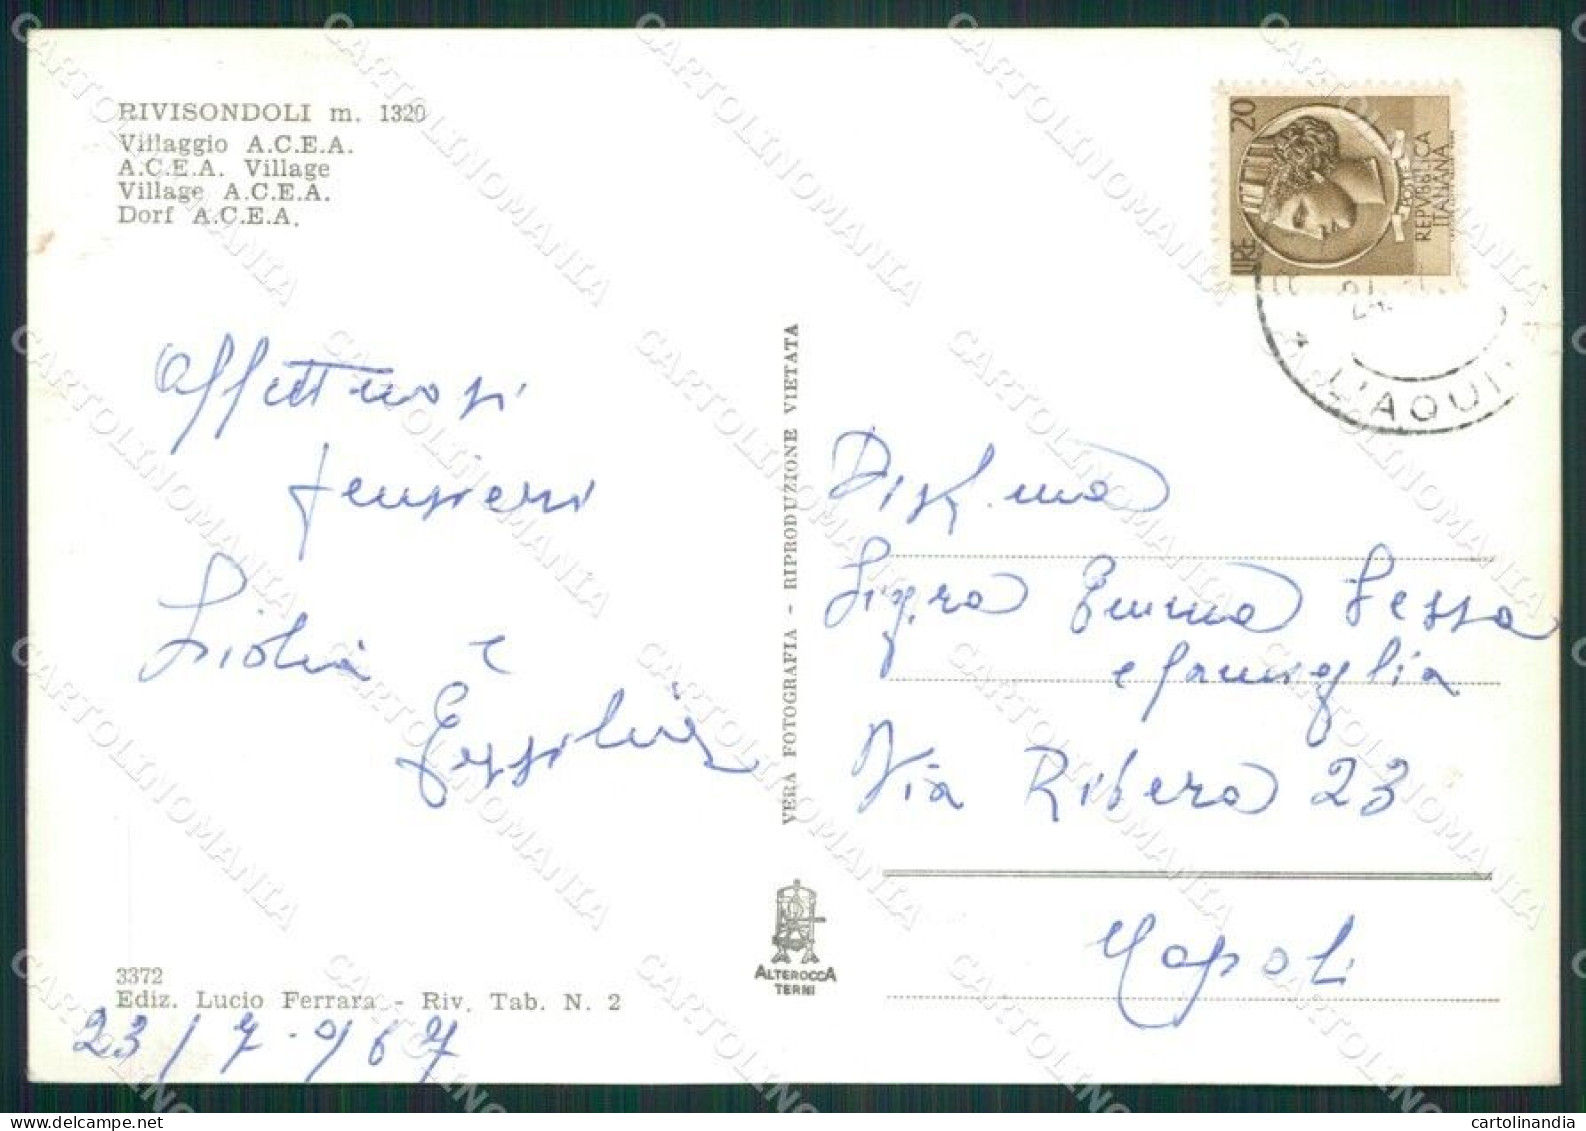 RIVISONDOLI m. 1320
Villaggio A.C.E.A.
A.C.E.A. Village
Village A.C.E.A.
Dorf A.C.E.A.
LIRE 20
POSTE
REPVBBLICA
ITALIANA
24
L'AQUI
Affettuosi
pensieri
Silvia e
Ersilia
VERA FOTOGRAFIA - RIPRODUZIONE VIETATA
Sig.ra Emma Sessa
e famiglia
Via Ribera 23
Napoli
ALTEROCCA
TERNI
3372
Ediz. Lucio Ferrara - Riv. Tab. N. 2
23/7.967
CARTOLINOMANIA
cartolinandia